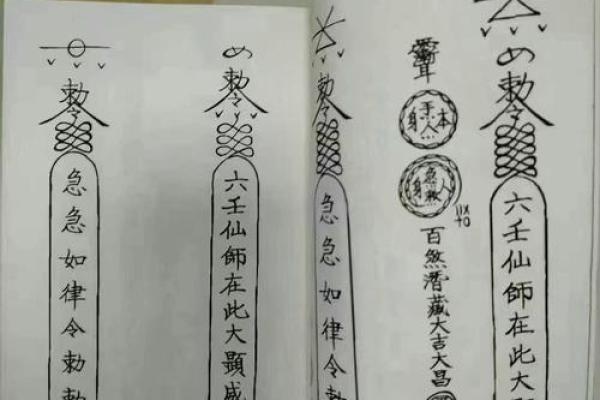 勅令
六壬仙師在此大
百煞潛藏大吉大昌
勅令
急急如律令勅
勅令
六壬仙師在此大顯威
勅令
急急如律令勅